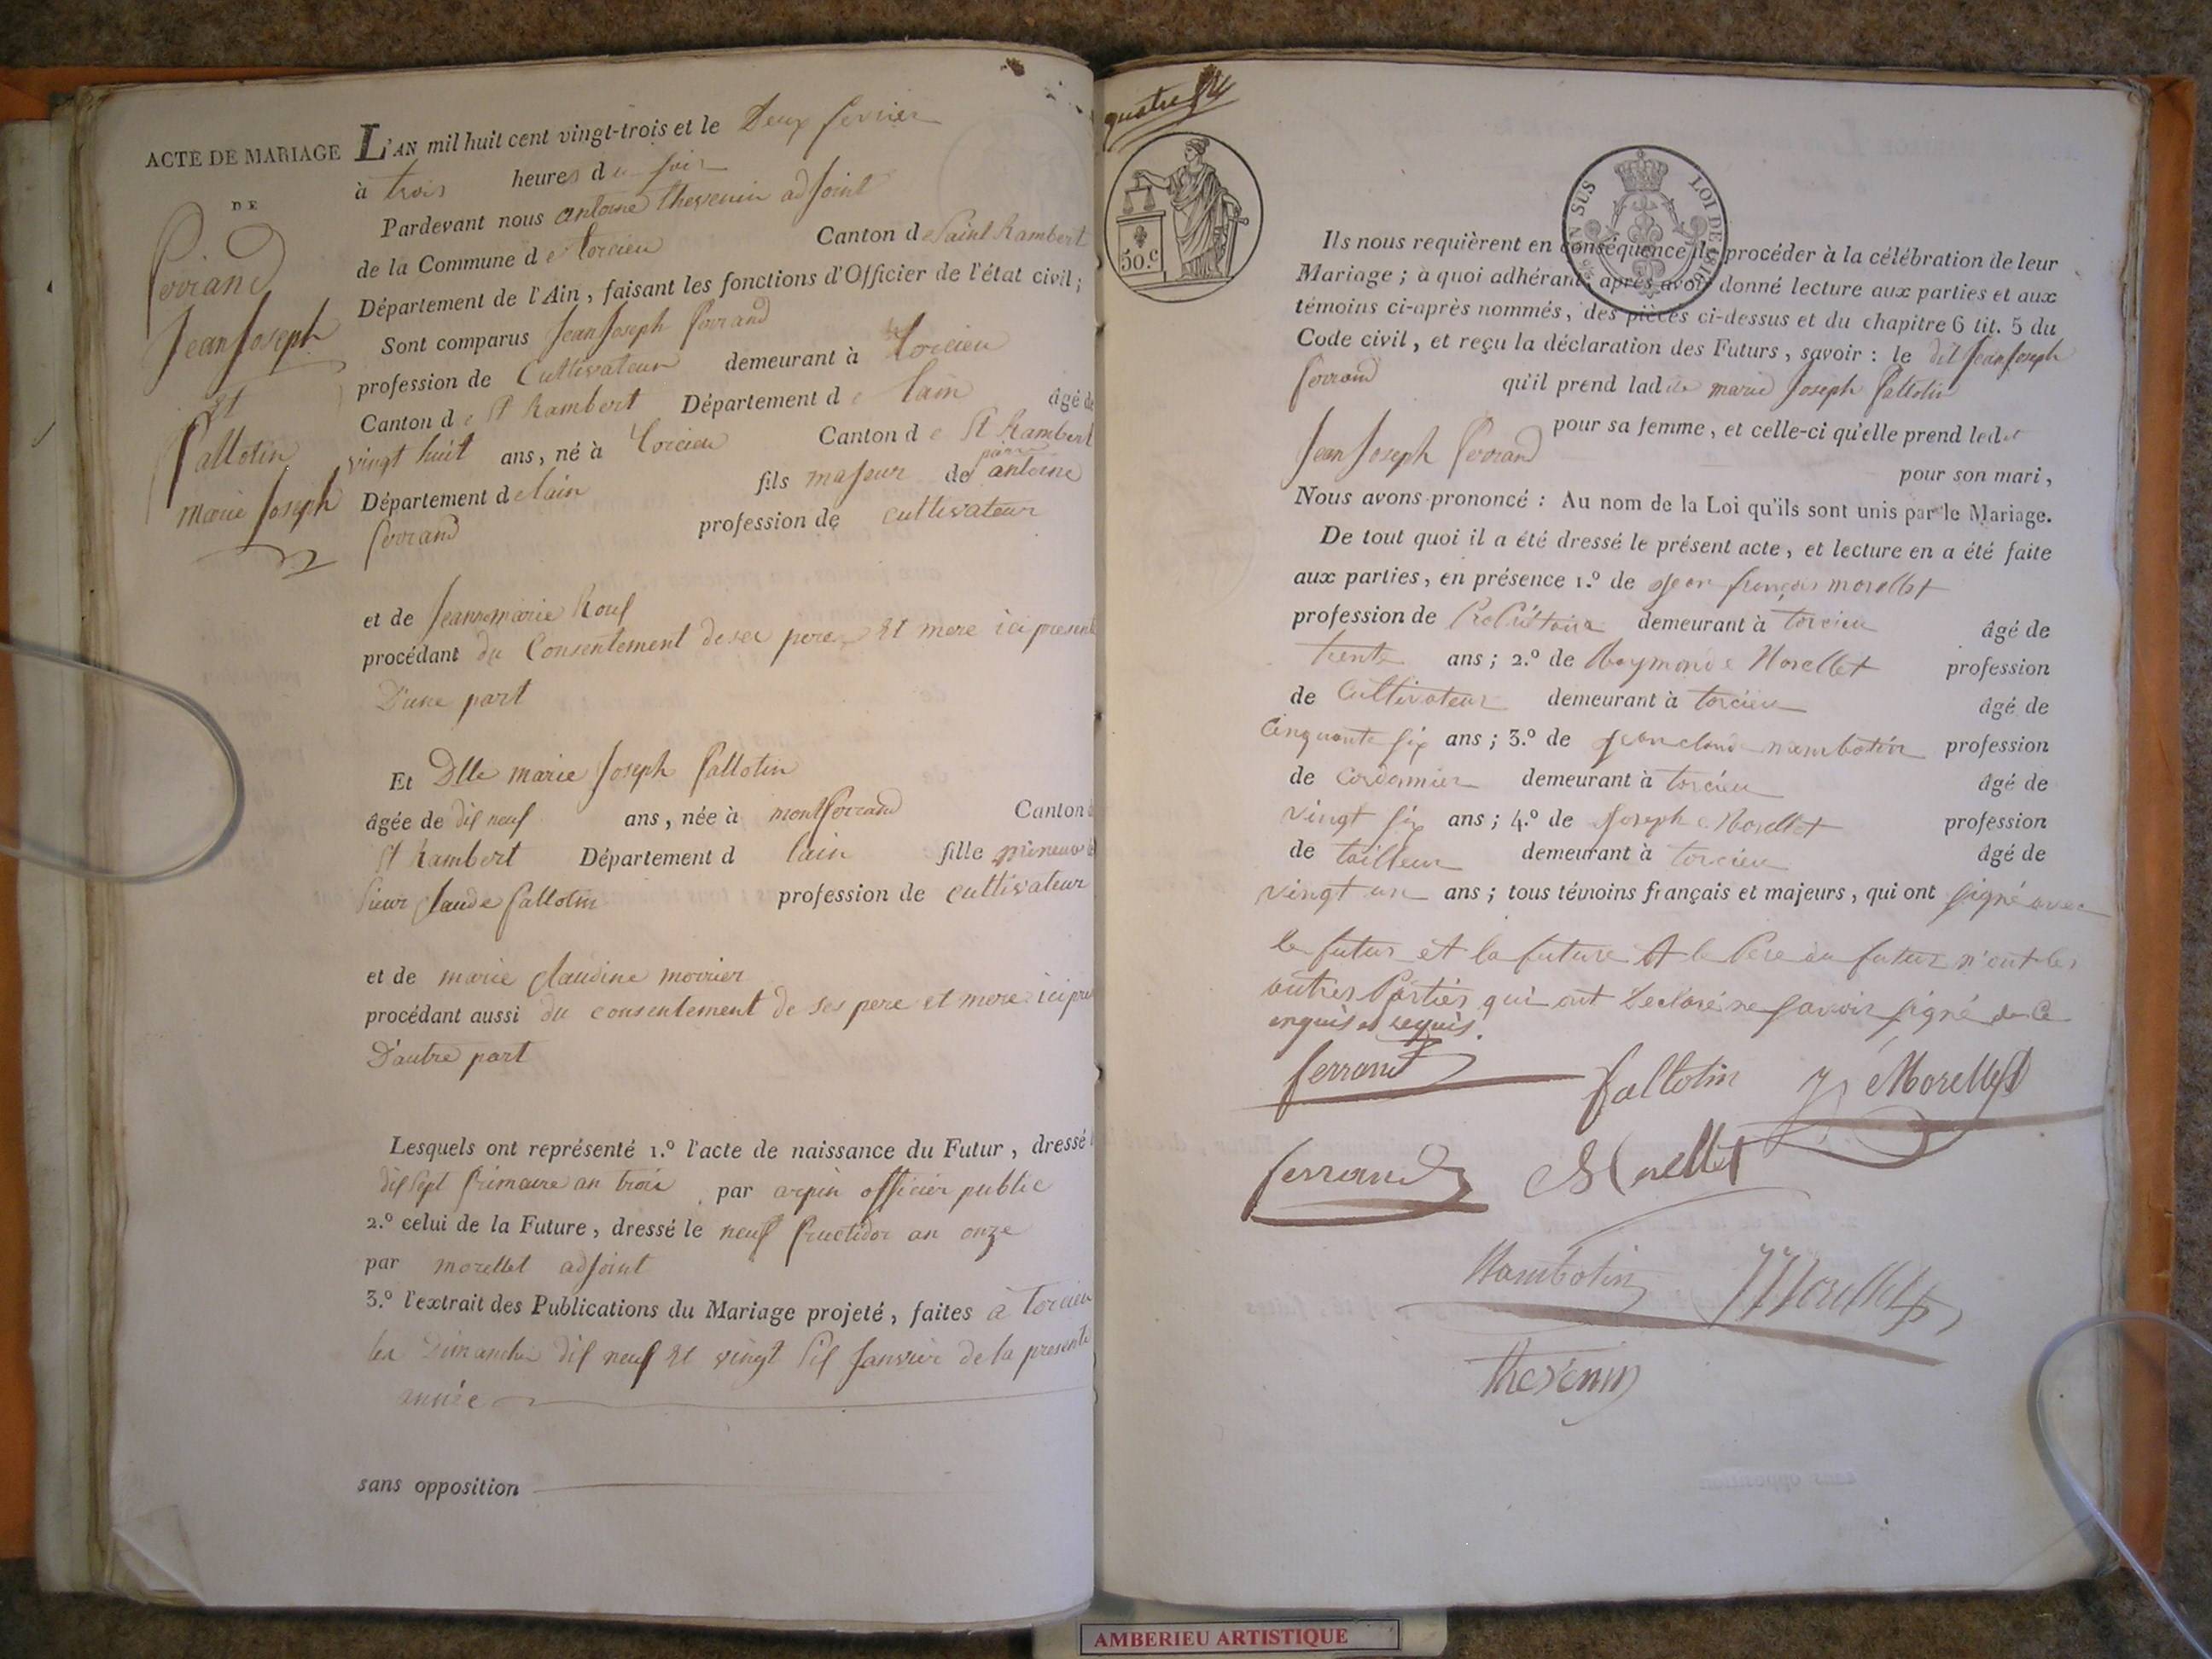 ACTE DE MARIAGE
DE
ferrand
Jean Joseph
et
fallotin
marie Joseph
L'AN mil huit cent vingt-trois et le Deux fevrier
à trois heures du soir
Pardevant nous antoine thevenin adjoint
de la Commune de torcieu Canton de Saint Rambert
Département de l'Ain, faisant les fonctions d'Officier de l'état civil;
Sont comparus Jean Joseph ferrand
profession de Cultivateur demeurant à torcieu
Canton de St Rambert Département de lain âgé de
vingt huit ans, né à torcieu Canton de St Rambert
Département de lain fils majeur de antoine
ferrand profession de cultivateur
et de Jeanne marie Rouf
procédant du Consentement de ses pere et mere ici present
D'une part
Et Dlle marie Joseph fallotin
âgée de dix neuf ans, née à montferrand Canton
St Rambert Département d lain fille mineure
sieur claude fallotin profession de cultivateur
et de marie claudine morrier
procédant aussi du consentement de ses pere et mere ici pre
D'autre part
Lesquels ont représenté 1.º l'acte de naissance du Futur, dressé
dix sept frimaire an trois par arpin officier public
2.º celui de la Future, dressé le neuf fructidor an onze
par morellet adjoint
3.º l'extrait des Publications du Mariage projeté, faites à torcieu
les Dimanches dix neuf et vingt six Janvier de la presente
année
sans opposition
quatre
50.c
LOI DE 1816
EN SUS
Ils nous requièrent en conséquence de procéder à la célébration de leur
Mariage; à quoi adhérant, après avoir donné lecture aux parties et aux
témoins ci-après nommés, des pièces ci-dessus et du chapitre 6 tit. 5 du
Code civil, et reçu la déclaration des Futurs, savoir: le dit Jean Joseph
ferrand qu'il prend ladite marie Joseph fallotin
pour sa femme, et celle-ci qu'elle prend ledit
Jean Joseph ferrand pour son mari,
Nous avons prononcé: Au nom de la Loi qu'ils sont unis par le Mariage.
De tout quoi il a été dressé le présent acte, et lecture en a été faite
aux parties, en présence 1.º de Jean françois morellet
profession de Propriétaire demeurant à torcieu âgé de
trente ans; 2.º de Raymond Morellet profession
de Cultivateur demeurant à torcieu âgé de
cinquante six ans; 3.º de Jean claude nambotin profession
de cordonnier demeurant à torcieu âgé de
vingt six ans; 4.º de Joseph Morellet profession
de tailleur demeurant à torcieu âgé de
vingt un ans; tous témoins français et majeurs, qui ont signé avec
le futur et la future et le Pere du futur n'ont les
autres Parties qui ont declaré ne savoir signé de ce
enquis et requis.
ferrand fallotin J Morellet
ferrand Morellet
Nambotin Morellet
thevenin
AMBERIEU ARTISTIQUE